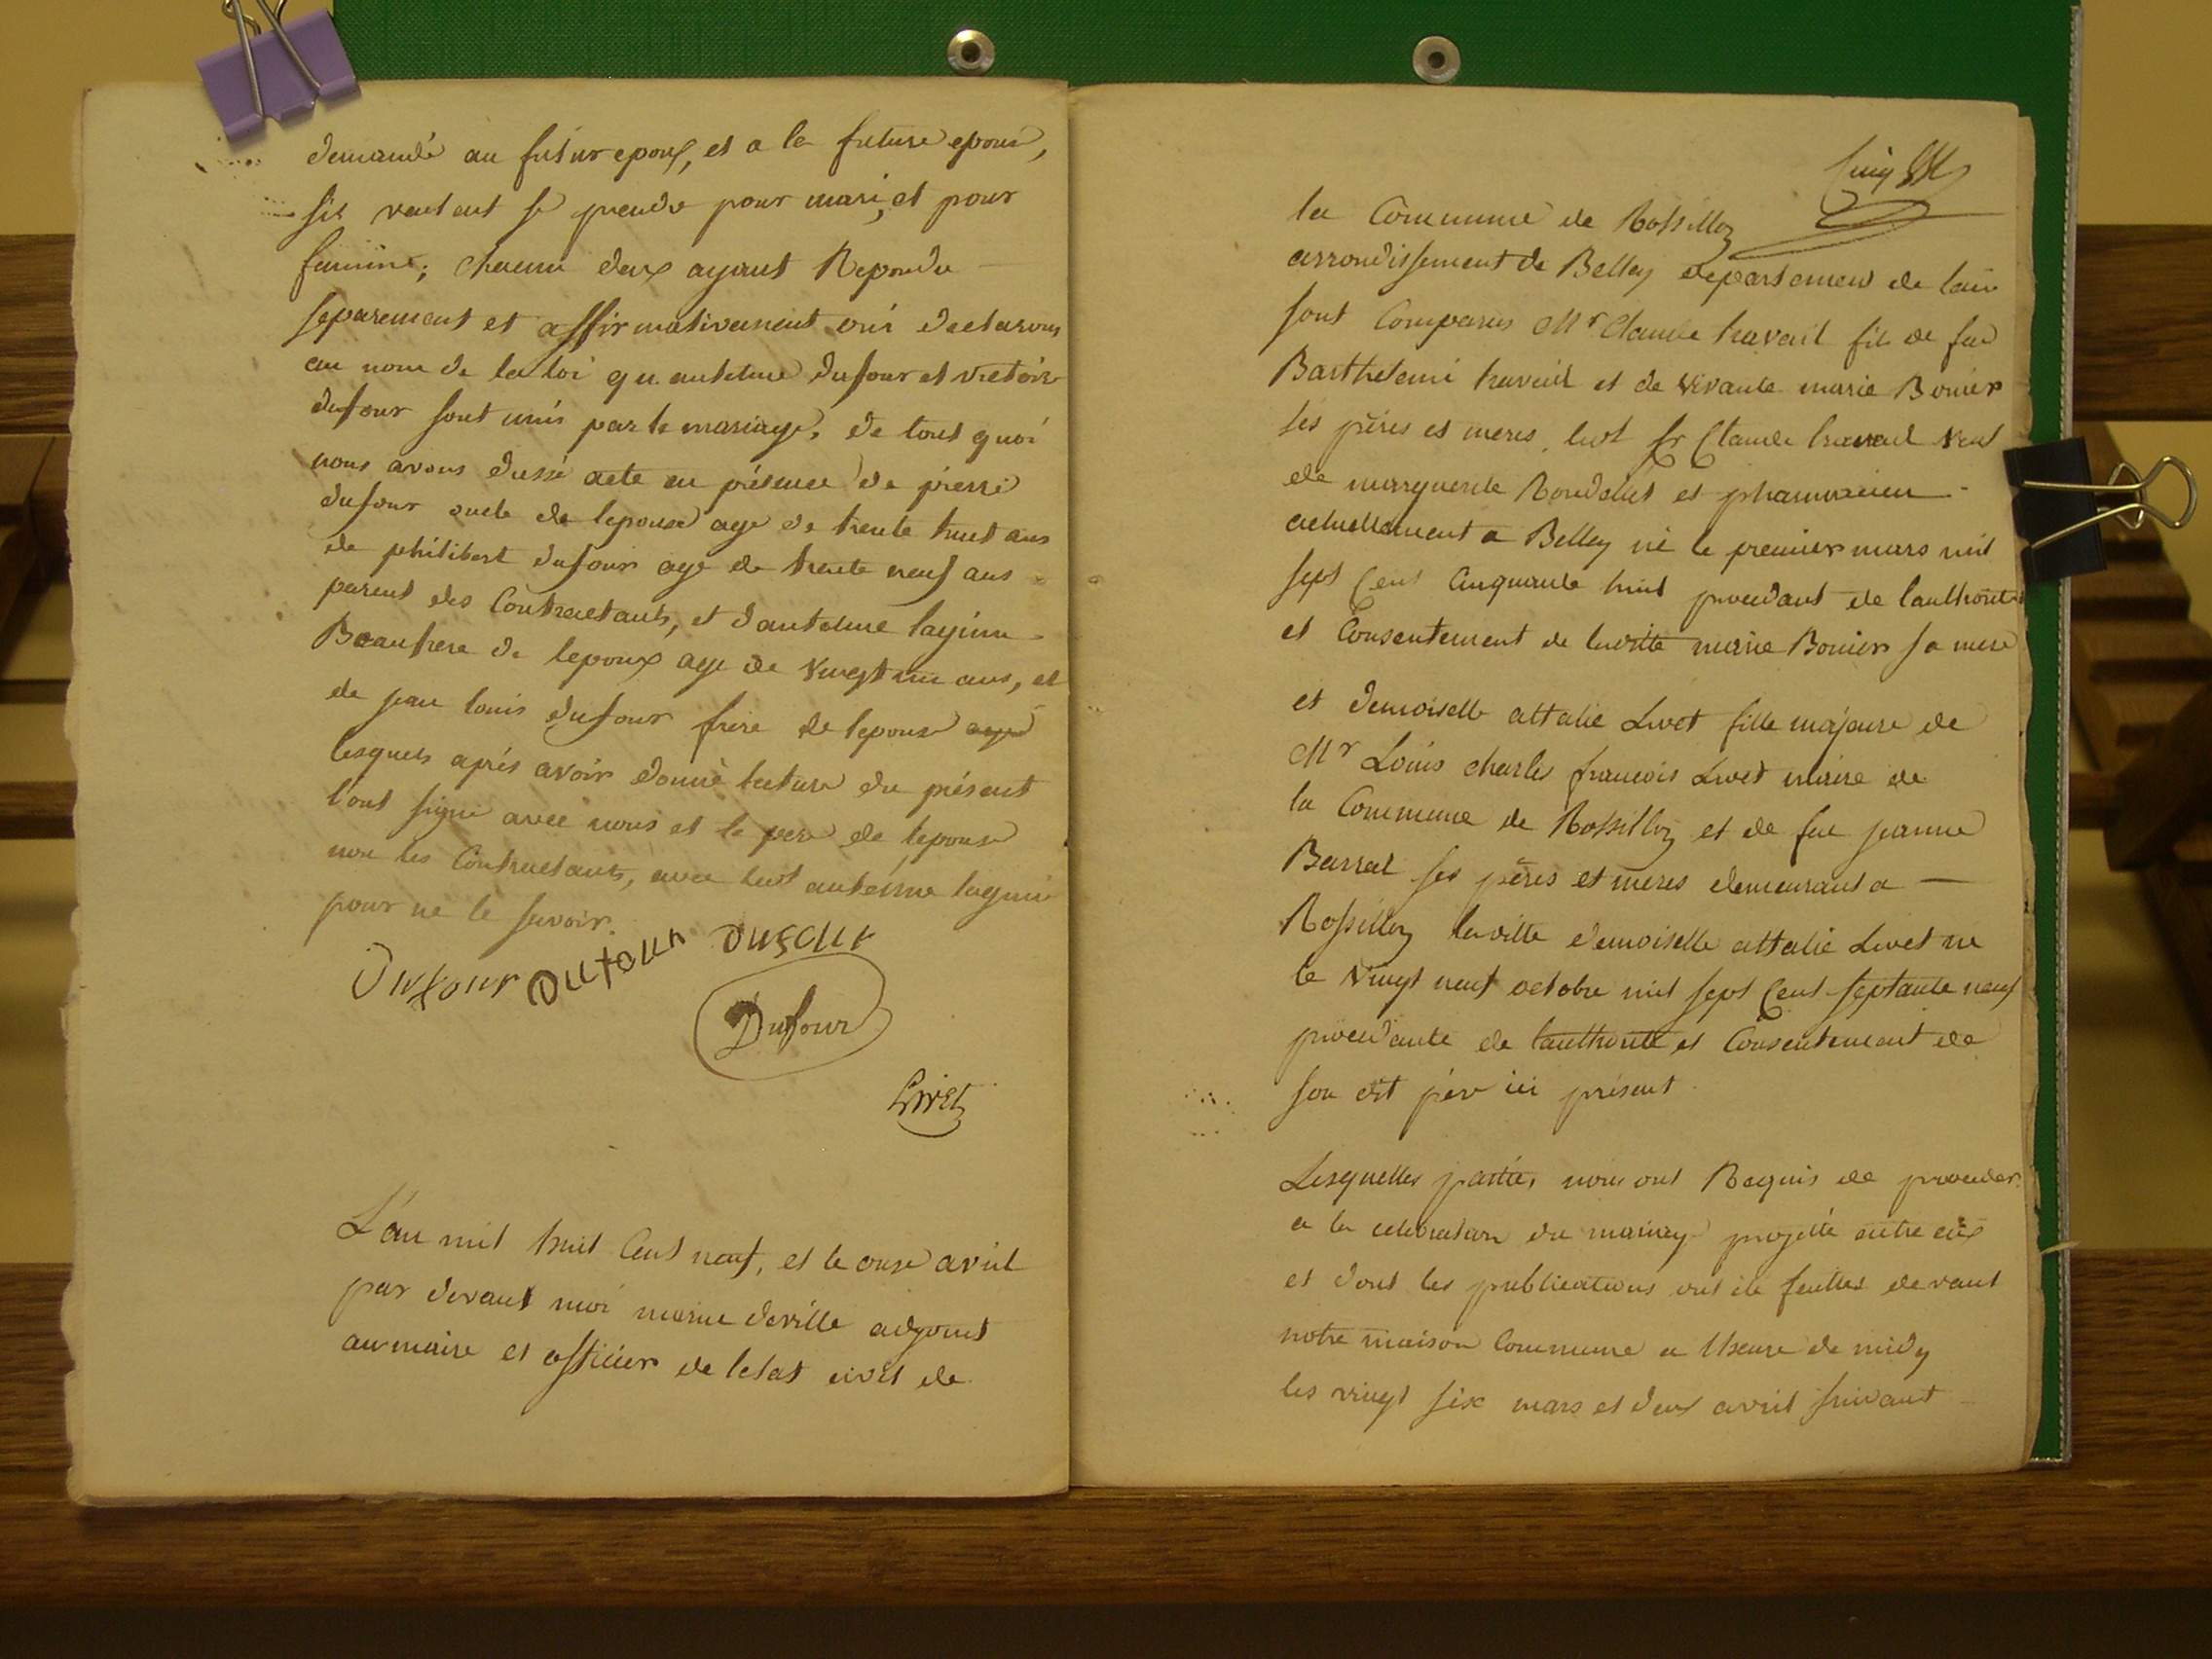 demandé au futur epoux, et a la future epouse,
sil veulent se prendre pour mari, et pour
femme; chacun deux ayant Repondu
separement et affirmativement oui declarons
au nom de la loi qu antelme dufour et victoire
dufour sont unis par le mariage, de tout quoi
nous avons dressé acte en présence de pierre
dufour oncle de lepouse age de trente huit ans
de philibert dufour age de trente neuf ans
parent des Contractants, et dantelme
Beaufrere de lepoux age de vingt un ans, et
de jean louis dufour frere de lepouse
lesquels aprés avoir donné lecture du présent
l'ont signe avec nous et le pere de lepouse
non les Contractants, avec ledt antelme
pour ne le savoir.
Dufour Dufour Dufour
Dufour
Livet
L'an mil huit Cent neuf, et le onze avril
par devant moi deville adjoint
au maire et officier de letat civil de
la Commune de Rossillon
arrondissement de Belley departement de lain
sont Comparus Mr Claude travail fils de feu
Barthelemi travail et de vivante marie Bonier
ses péres et meres, ledt sr Claude travail veuf
de marguerite et pharmacien
actuellement a Belley né le premier mars mil
sept Cent Cinquante huit procedant de lauthorité
et Consentement de ladite marie Bonier sa mere
et demoiselle attalie Livet fille majeure de
Mr Louis charles francois Livet maire de
la Commune de Rossillon et de feue jeanne
Barral ses péres et meres demeurant a
Rossillon ladite demoiselle attalie Livet né
le vingt neuf octobre mil sept Cent septante neuf
procedante de lauthorité et Consentement de
son dit pére ici présent
Lesquelles parties nous ont Requis de proceder
a la celebration du mariage projetté entre eux
et dont les publications ont été faittes devant
notre maison Commune a lheure de midy
les vingt six mars et deux avril suivant